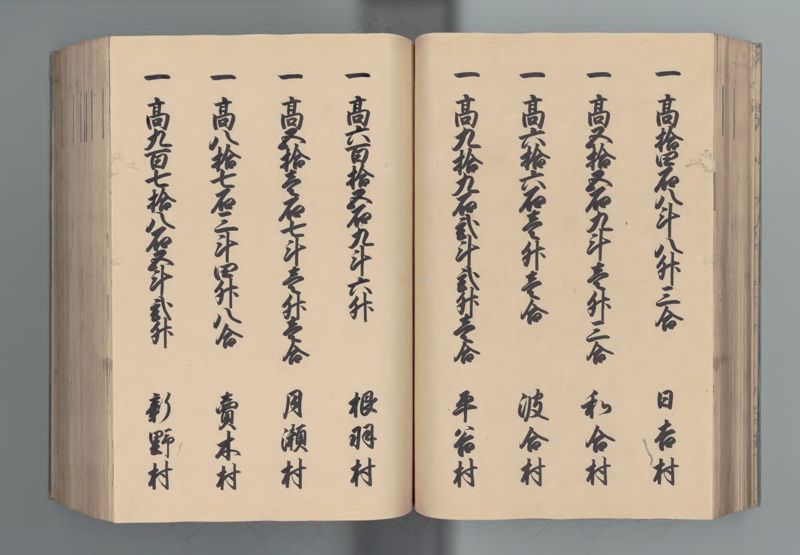 一 高拾四石八斗八升三合 日吉村
一 高五拾五石九斗壱升三合 和合村
一 高六拾六石壱升壱合 波合村
一 高九拾九石弐斗弐升壱合 平谷村
一 高六百拾五石九斗六升 根羽村
一 高五拾壱石七斗壱升壱合 月瀬村
一 高八拾七石三斗四升八合 賣木村
一 高九百七拾八石五斗弐升 新野村